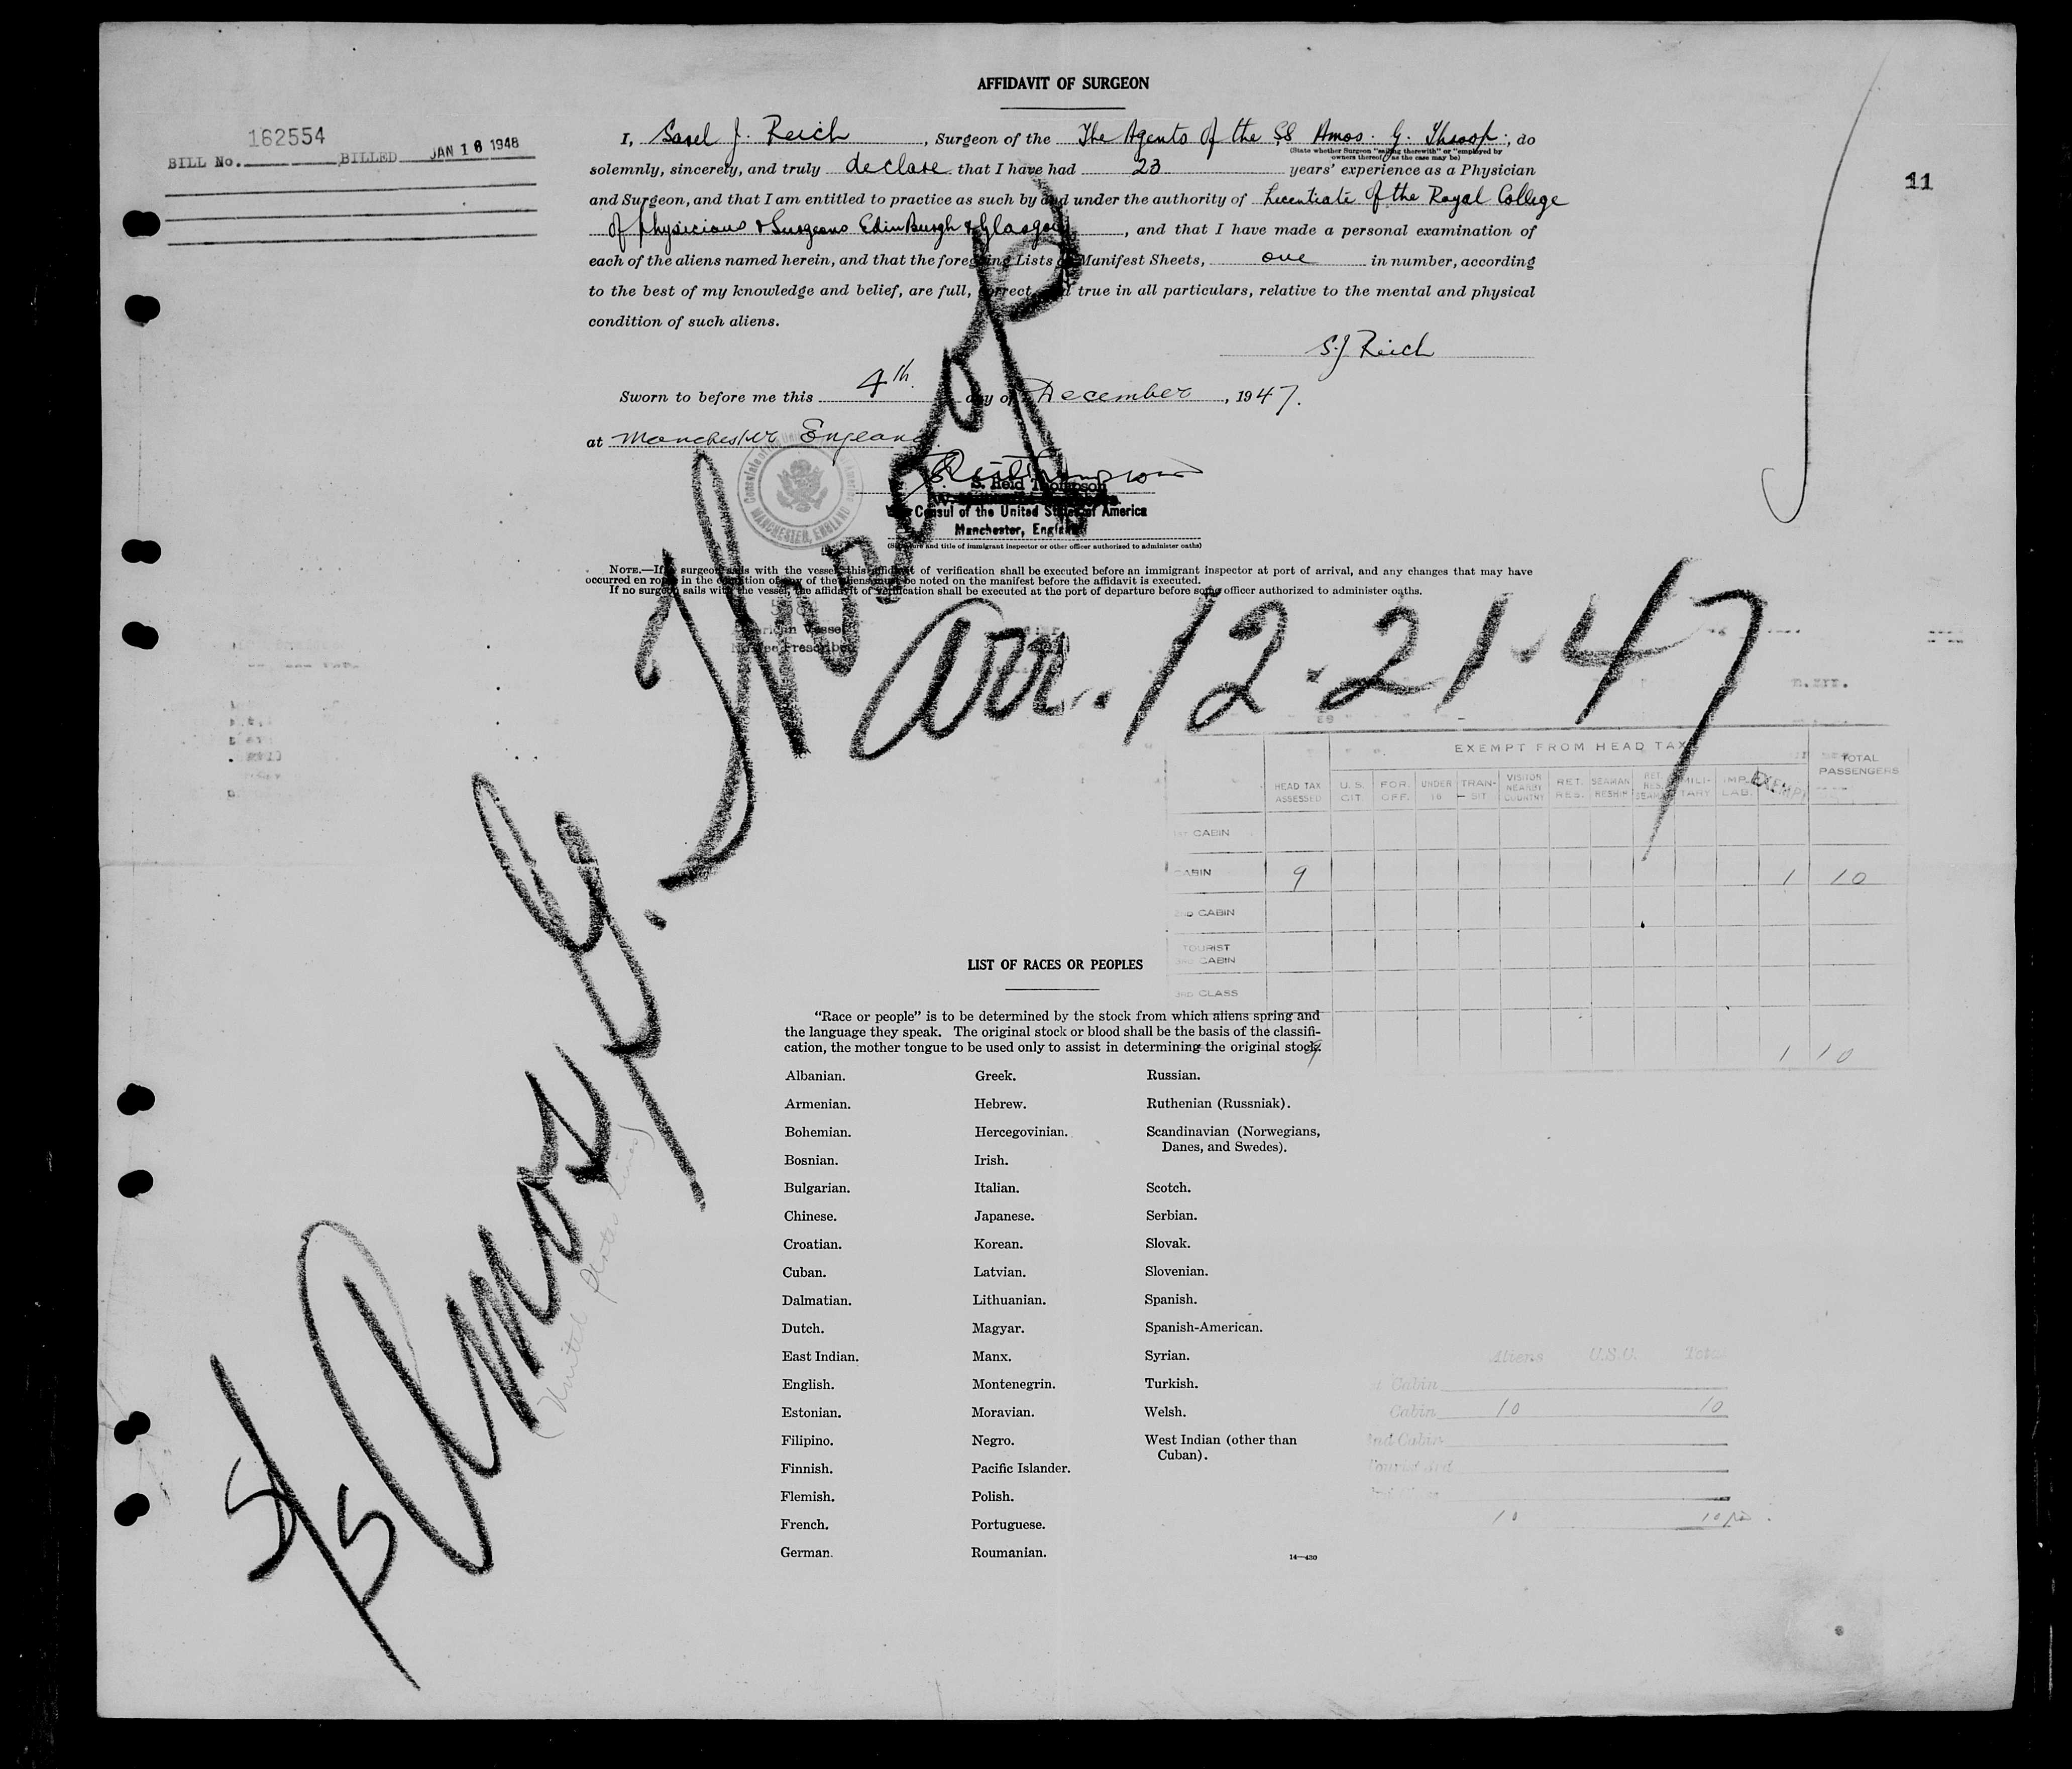 AFFIDAVIT OF SURGEON
162554
BILL No. BILLED JAN 16 1948
11
I, Sasel J. Reich, Surgeon of the The Agents of the SS Amos. G. Throop; do
(State whether Surgeon "sailing therewith" or "employed by
owners thereof," as the case may be)
solemnly, sincerely, and truly declare that I have had 23 years' experience as a Physician
and Surgeon, and that I am entitled to practice as such by and under the authority of Licentiate of the Royal College
of physicians & Surgeons EdinBurgh & Glasgow, and that I have made a personal examination of
each of the aliens named herein, and that the foregoing Lists or Manifest Sheets, one in number, according
to the best of my knowledge and belief, are full, correct, and true in all particulars, relative to the mental and physical
condition of such aliens.
S.J Reich
Sworn to before me this 4th. day of December, 1947.
at Manchester England
S. Reid Thompson
Consul of the United States of America
Manchester, England
MANCHESTER, ENGLAND
(Signature and title of immigrant inspector or other officer authorized to administer oaths)
NOTE.—If a surgeon sails with the vessel, this affidavit of verification shall be executed before an immigrant inspector at port of arrival, and any changes that may have
occurred en route in the condition of any of the aliens must be noted on the manifest before the affidavit is executed.
If no surgeon sails with the vessel, the affidavit of verification shall be executed at the port of departure before some officer authorized to administer oaths.
American Vessel
No Fee Prescribed
S/S Amos G. Throop
Arr. 12.21.47
(United States Lines)
EXEMPT FROM HEAD TAX
HEAD TAX ASSESSED U.S. CIT. FOR. OFF. UNDER 16 TRAN-SIT VISITOR NEARBY COUNTRY RET. RES. SEAMAN RESHIP RET. RES. SEAMAN MILI-TARY IMP. LAB. EXEMPT TOTAL PASSENGERS
1ST CABIN
CABIN 9 1 10
2ND CABIN
TOURIST
3RD CABIN
3RD CLASS
9 1 10
LIST OF RACES OR PEOPLES
"Race or people" is to be determined by the stock from which aliens spring and
the language they speak. The original stock or blood shall be the basis of the classifi-
cation, the mother tongue to be used only to assist in determining the original stock.
Albanian. Greek. Russian.
Armenian. Hebrew. Ruthenian (Russniak).
Bohemian. Hercegovinian. Scandinavian (Norwegians,
Danes, and Swedes).
Bosnian. Irish.
Bulgarian. Italian. Scotch.
Chinese. Japanese. Serbian.
Croatian. Korean. Slovak.
Cuban. Latvian. Slovenian.
Dalmatian. Lithuanian. Spanish.
Dutch. Magyar. Spanish-American.
East Indian. Manx. Syrian.
English. Montenegrin. Turkish.
Estonian. Moravian. Welsh.
Filipino. Negro. West Indian (other than
Cuban).
Finnish. Pacific Islander.
Flemish. Polish.
French. Portuguese.
German. Roumanian.
14—430
Aliens U.S.C. Total
Cabin
Cabin 10 10
2nd Cabin
Tourist 3rd
10 10